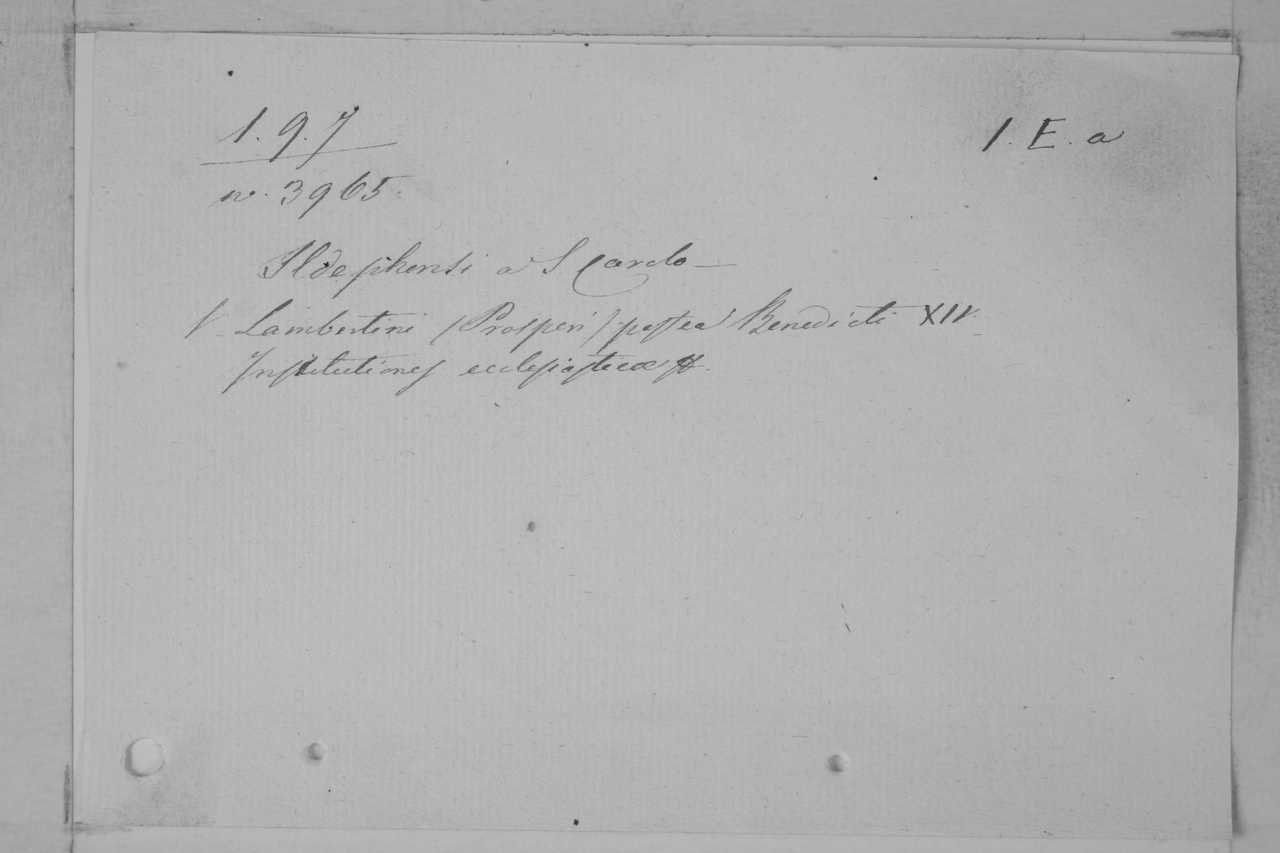 1.9.7
1. E. a
n. 3965.
Ildephonsi a S Carolo
V. Lambertini (Prosperi) postea Benedicti XIV.
Institutiones ecclesiasticæ